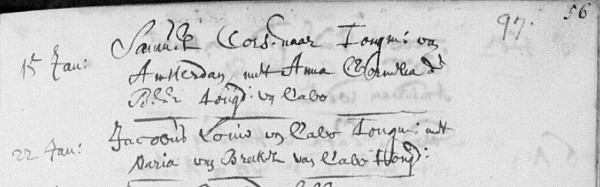 97. 56
15 Jan: Samuel Cors:naar Jongm: van
Amsterdam met Anna Cornelia d
Jongd: vn Cabo
22 Jan: Jacobus Louw vn Cabo Jongm: met
Maria van Brakel van Cabo Jongd: